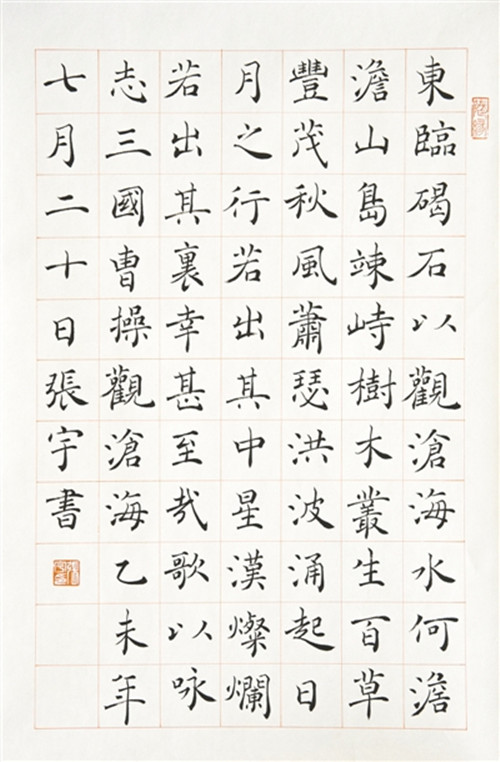 東臨碣石以觀滄海水何澹
澹山島竦峙樹木叢生百草
豐茂秋風蕭瑟洪波涌起日
月之行若出其中星漢燦爛
若出其裏幸甚至哉歌以咏
志三國曹操觀滄海乙未年
七月二十日張宇書